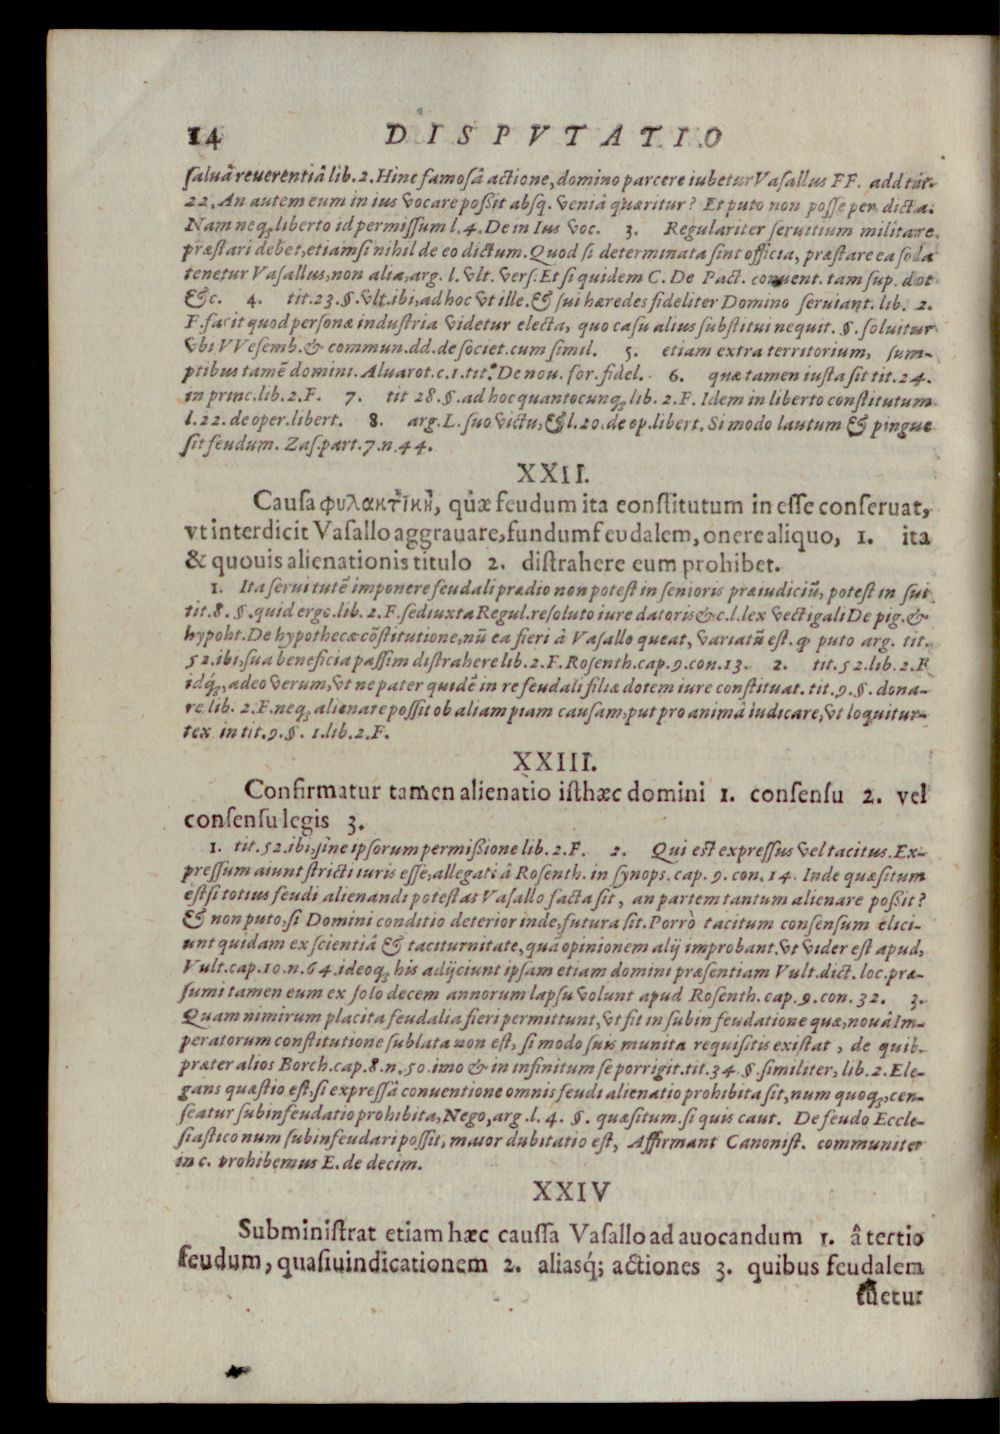 14 DISPVTATIO
ſaluâ reuerentiâ lib. 2. Hinc famoſâ actione, domino parcere iubetur Vaſallus FF. add tit.
22. An autem eum in ius vocare poßit abſq. veniâ quæritur? Et puto non poſſe per dicta.
Nam neq; liberto id permiſſum l. 4. De in Ius voc. 3. Regulariter ſeruitium militare
præſtari debet, etiamſi nihil de eo dictum. Quod ſi determinata ſint officia, præſtare ea ſola
tenetur Vaſallus, non alia, arg. l. vlt. verſ. Et ſi quidem C. De Pact. conuent. tam ſup. dot
&c. 4. tit. 23. §. vlt. ibi, ad hoc vt ille. & ſui hæredes fideliter Domino ſeruiant. lib. 2.
F. facit quod perſonæ induſtria videtur electa, quo caſu alius ſubſtitui nequit. §. ſoluitur
vbi VVeſemb. & commun. dd. de ſociet. cum ſimil. 5. etiam extra territorium, ſum-
ptibus tamē domini. Aluarot. c. 1. tit. De nou. for. fidel. 6. quæ tamen iuſta ſit tit. 24.
in princ. lib. 2. F. 7. tit 28. §. ad hoc quantocunq; lib. 2. F. Idem in liberto conſtitutum
l. 22. de oper. libert. 8. arg. L. ſuo victu, & l. 20. de op. libert. Si modo lautum & pingue
ſit feudum. Zaſ. part. 7. n. 44.
XXII.
Cauſa φυλακτικὴ, quæ feudum ita conſtitutum in eſſe conſeruat,
vt interdicit Vaſallo aggrauare, fundum feudalem, onere aliquo, 1. ita
& quouis alienationis titulo 2. diſtrahere eum prohibet.
1. Ita ſeruitutē imponere feudali prædio non poteſt in ſenioris præiudiciū, poteſt in ſui
tit. 8. §. quid ergo. lib. 2. F. ſed iuxta Regul. reſoluto iure datoris &c. l. lex vectigali De pig. &
hypoht. De hypothecæ cōſtitutione, nū ea fieri â Vaſallo queat, variatū eſt. ꝙ puto arg. tit.
52. ibi, ſua beneficia paſſim diſtrahere lib. 2. F. Roſenth. cap. 9. con. 13. 2. tit. 52. lib. 2. F
idq́;, adeo verum, vt ne pater quidē in re feudali filiæ dotem iure conſtituat. tit. 9. §. dona-
re lib. 2. F. neq; alienare poſſit ob aliam piam cauſam, put pro animâ iudicare, vt loquitur
tex in tit. 9. §. 1. lib. 2. F.
XXIII.
Confirmatur tamen alienatio iſthæc domini 1. conſenſu 2. vel
conſenſu legis 3.
1. tit. 52. ibi, ſine ipſorum permißione lib. 2. F. 2. Qui eſt expreſſus vel tacitus. Ex-
preſſum aiunt ſtricti iuris eſſe, allegati â Roſenth. in ſynops. cap. 9. con. 14. Inde quæſitum
eſt ſi totius feudi alienandi poteſtas Vaſallo facta ſit, an partem tantum alienare poßit?
& non puto, ſi Domini conditio deterior inde, futura ſit. Porrò tacitum conſenſum elici-
unt quidam ex ſcientiâ & taciturnitate, quā opinionem alij improbant. vt vider eſt apud,
Vult. cap. 10. n. 64. ideoq; his adijciunt ipſam etiam domini præſentiam Vult. dict. loc. præ-
ſumi tamen eum ex ſolo decem annorum lapſu volunt apud Roſenth. cap. 9. con. 32. 3.
Quam nimirum placita feudalia fieri permittunt, vt fit in ſubinfeudatione quæ, nouâ Im-
peratorum conſtitutione ſublata non eſt, ſi modo ſuis munita requiſitis exiſtat, de quib.
præter alios Borch. cap. 8. n. 50. imo & in infinitum ſe porrigit. tit. 34. §. ſimiliter, lib. 2. Ele-
gans quæſtio eſt, ſi expreſſâ conuentione omnis feudi alienatio prohibita ſit, num quoq;, cen-
ſeatur ſubinfeudatio prohibita, Nego, arg. l. 4. §. quæſitum. ſi quis caut. De feudo Eccle-
ſiaſtico num ſubinfeudari poſſit, maior dubitatio eſt, Affirmant Canoniſt. communiter
in c. prohibemus E. de decim.
XXIV
Subminiſtrat etiam hæc cauſſa Vaſallo ad auocandum 1. â tertio
feudum, quaſiuindicationem 2. aliasq́; actiones 3. quibus feudalem
tuetur